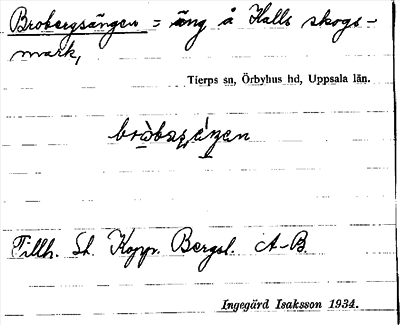 Brobergsängen = äng å Halls skogs-
mark,
Tierps sn, Örbyhus hd, Uppsala län.
Tillh. St. Koppr. Bergsl. A-B.
Ingegärd Isaksson 1934.